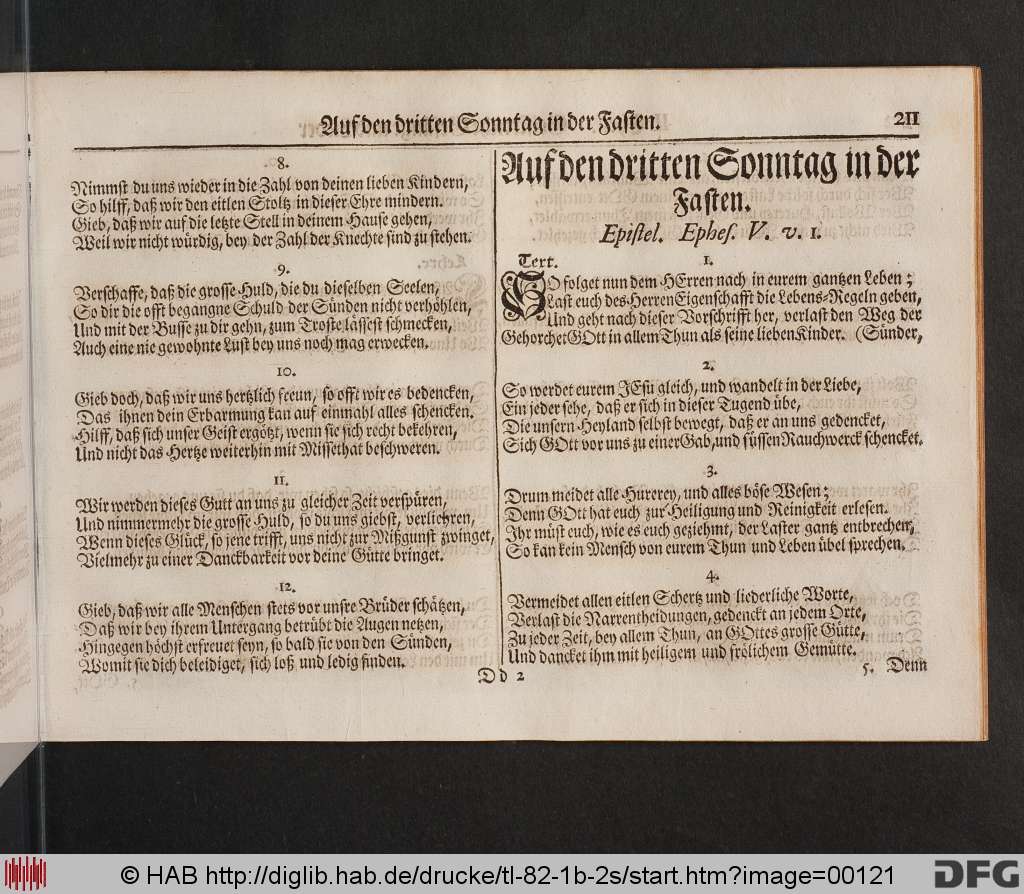 Auf den dritten Sonntag in der Fasten. 211
8.
Nimmst du uns wieder in die Zahl von deinen lieben Kindern,
So hilff, daß wir den eitlen Stoltz in dieser Ehre mindern.
Gieb, daß wir auf die letzte Stell in deinem Hause gehen,
Weil wir nicht würdig, bey der Zahl der Knechte sind zu stehen.
9.
Verschaffe, daß die grosse Huld, die du dieselben Seelen,
So dir die offt begangne Schuld der Sünden nicht verhöhlen,
Und mit der Busse zu dir gehn, zum Troste lässest schmecken,
Auch eine nie gewohnte Lust bey uns noch mag erwecken.
10.
Gieb doch, daß wir uns hertzlich freun, so offt wir es bedencken,
Das ihnen dein Erbarmung kan auf einmahl alles schencken.
Hilff, daß sich unser Geist ergötzt, wenn sie sich recht bekehren,
Und nicht das Hertze weiterhin mit Missethat beschweren.
11.
Wir werden dieses Gutt an uns zu gleicher Zeit verspüren,
Und nimmermehr die grosse Huld, so du uns giebst, verliehren,
Wenn dieses Glück, so jene trifft, uns nicht zur Mißgunst zwinget,
Vielmehr zu einer Danckbarkeit vor deine Gütte bringet.
12.
Gieb, daß wir alle Menschen stets vor unsre Brüder schätzen,
Daß wir bey ihrem Untergang betrübt die Augen netzen,
Hingegen höchst erfreuet seyn, so bald sie von den Sünden,
Womit sie dich beleidiget, sich loß und ledig finden.
Auf den dritten Sonntag in der
Fasten.
Epistel. Ephes. V. v. 1.
1.
Text.
SO folget nun dem HErren nach in eurem gantzen Leben;
Last euch des Herren Eigenschafft die Lebens-Regeln geben,
Und geht nach dieser Vorschrifft her, verlast den Weg der
Gehorchet GOtt in allem Thun als seine lieben Kinder. (Sünder,
2.
So werdet eurem JEsu gleich, und wandelt in der Liebe,
Ein jeder sehe, daß er sich in dieser Tugend übe,
Die unsern Heyland selbst bewegt, daß er an uns gedencket,
Sich GOtt vor uns zu einer Gab, und süssen Rauchwerck schencket.
3.
Drum meidet alle Hurerey, und alles böse Wesen;
Denn GOtt hat euch zur Heiligung und Reinigkeit erlesen.
Ihr müst euch, wie es euch geziehmt, der Laster gantz entbrechen,
So kan kein Mensch von eurem Thun und Leben übel sprechen.
4.
Vermeidet allen eitlen Schertz und liederliche Worte,
Verlast die Narrentheidungen, gedenckt an jedem Orte,
Zu jeder Zeit, bey allem Thun, an GOttes grosse Gütte,
Und dancket ihm mit heiligem und frölichem Gemütte.
Dd 2
5. Denn
© HAB http://diglib.hab.de/drucke/tl-82-1b-2s/start.htm?image=00121
DFG